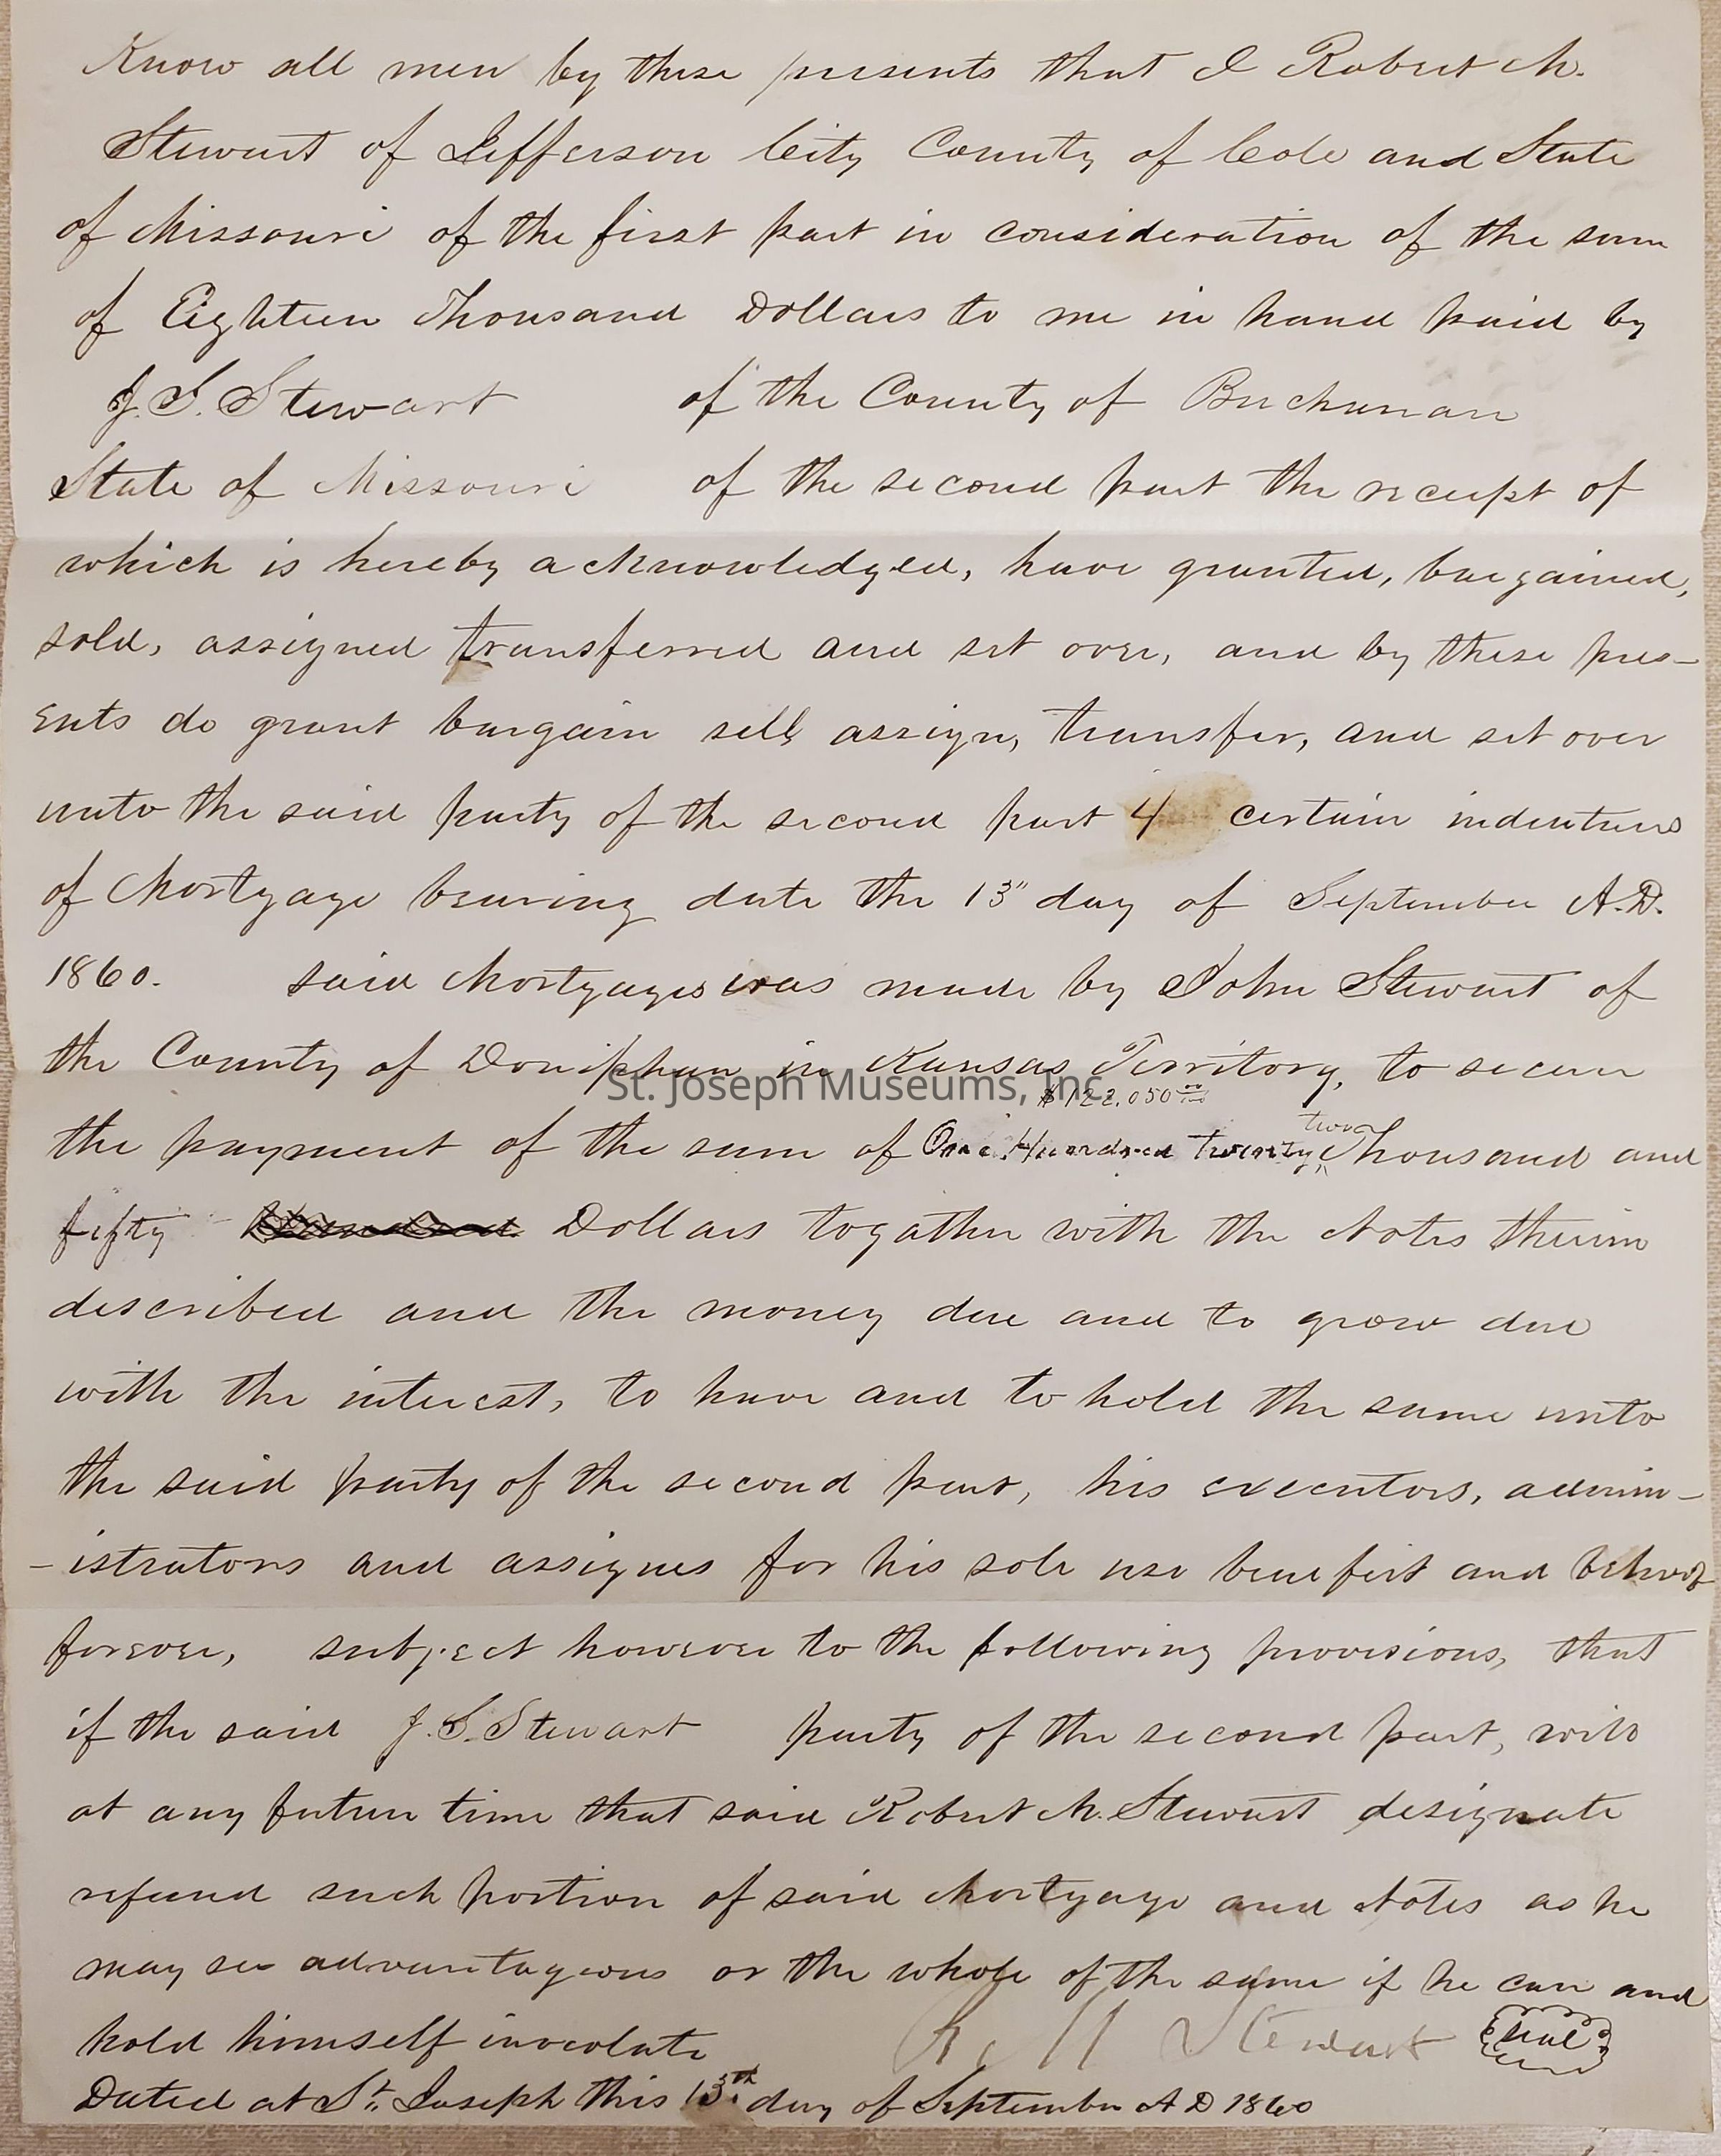 Know all men by these presents that I Robert M.
Stewart of Jefferson City County of Cole and State
of Missouri of the first part in consideration of the sum
of Eighteen Thousand Dollars to me in hand paid by
J. S. Stewart of the County of Buchanan
State of Missouri of the second part the receipt of
which is hereby acknowledged, have granted, bargained,
sold, assigned transferred and set over, and by these pres-
ents do grant bargain sell assign, transfer, and set over
unto the said party of the second part 4 certain indentures
of Mortgage bearing date the 13" day of September A.D.
1860. said Mortgages was made by John Stewart of
the County of Doniphan in Kansas Territory, to secure
St. Joseph Museums, Inc.
$122,050
two
the payment of the sum of One Hundred twenty Thousand and
fifty Dollars togather with the Notes therein
described and the money due and to grow due
with the interest, to have and to hold the same unto
the said party of the second part, his executors, admin-
-istrators and assignes for his sole use benefit and behoof
forever, subject however to the following provisions, that
if the said J. S. Stewart party of the second part, will
at any future time that said Robert M. Stewart designate
refund such portion of said Mortgage and Notes as he
may see advantageous or the whole of the same if he can and
hold himself invcolate R. M Stewart seal
Dated at St. Joseph this 13th day of September A D 1860